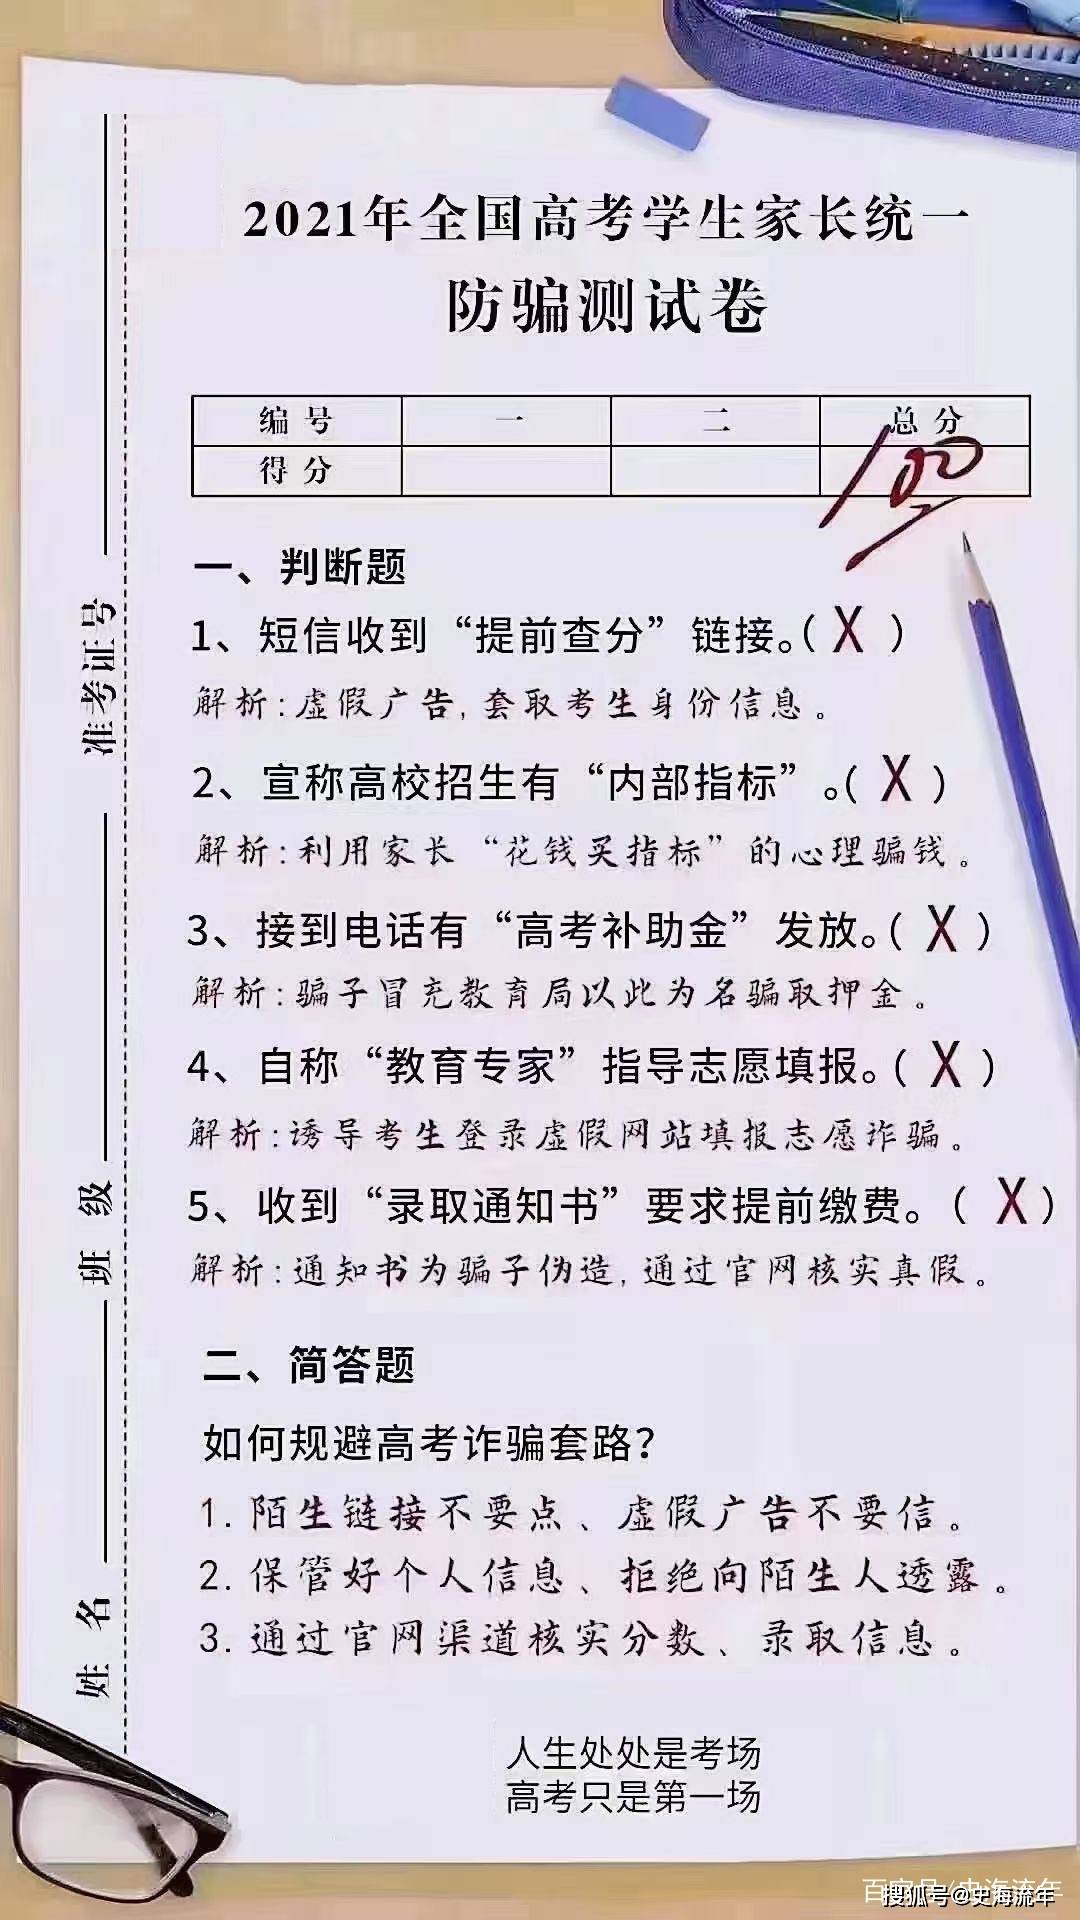 2021年全国高考学生家长统一
防骗测试卷
编号 一 二 总分
得分 100
一、判断题
1、短信收到“提前查分”链接。( X )
解析:虚假广告,套取考生身份信息。
2、宣称高校招生有“内部指标”。( X )
解析:利用家长“花钱买指标”的心理骗钱。
3、接到电话有“高考补助金”发放。( X )
解析:骗子冒充教育局以此为名骗取押金。
4、自称“教育专家”指导志愿填报。( X )
解析:诱导考生登录虚假网站填报志愿诈骗。
5、收到“录取通知书”要求提前缴费。( X )
解析:通知书为骗子伪造,通过官网核实真假。
二、简答题
如何规避高考诈骗套路？
1.陌生链接不要点、虚假广告不要信。
2.保管好个人信息、拒绝向陌生人透露。
3.通过官网渠道核实分数、录取信息。
人生处处是考场
高考只是第一场
准考证号
班级
姓名
百家号/史海流年
搜狐号@史海流年